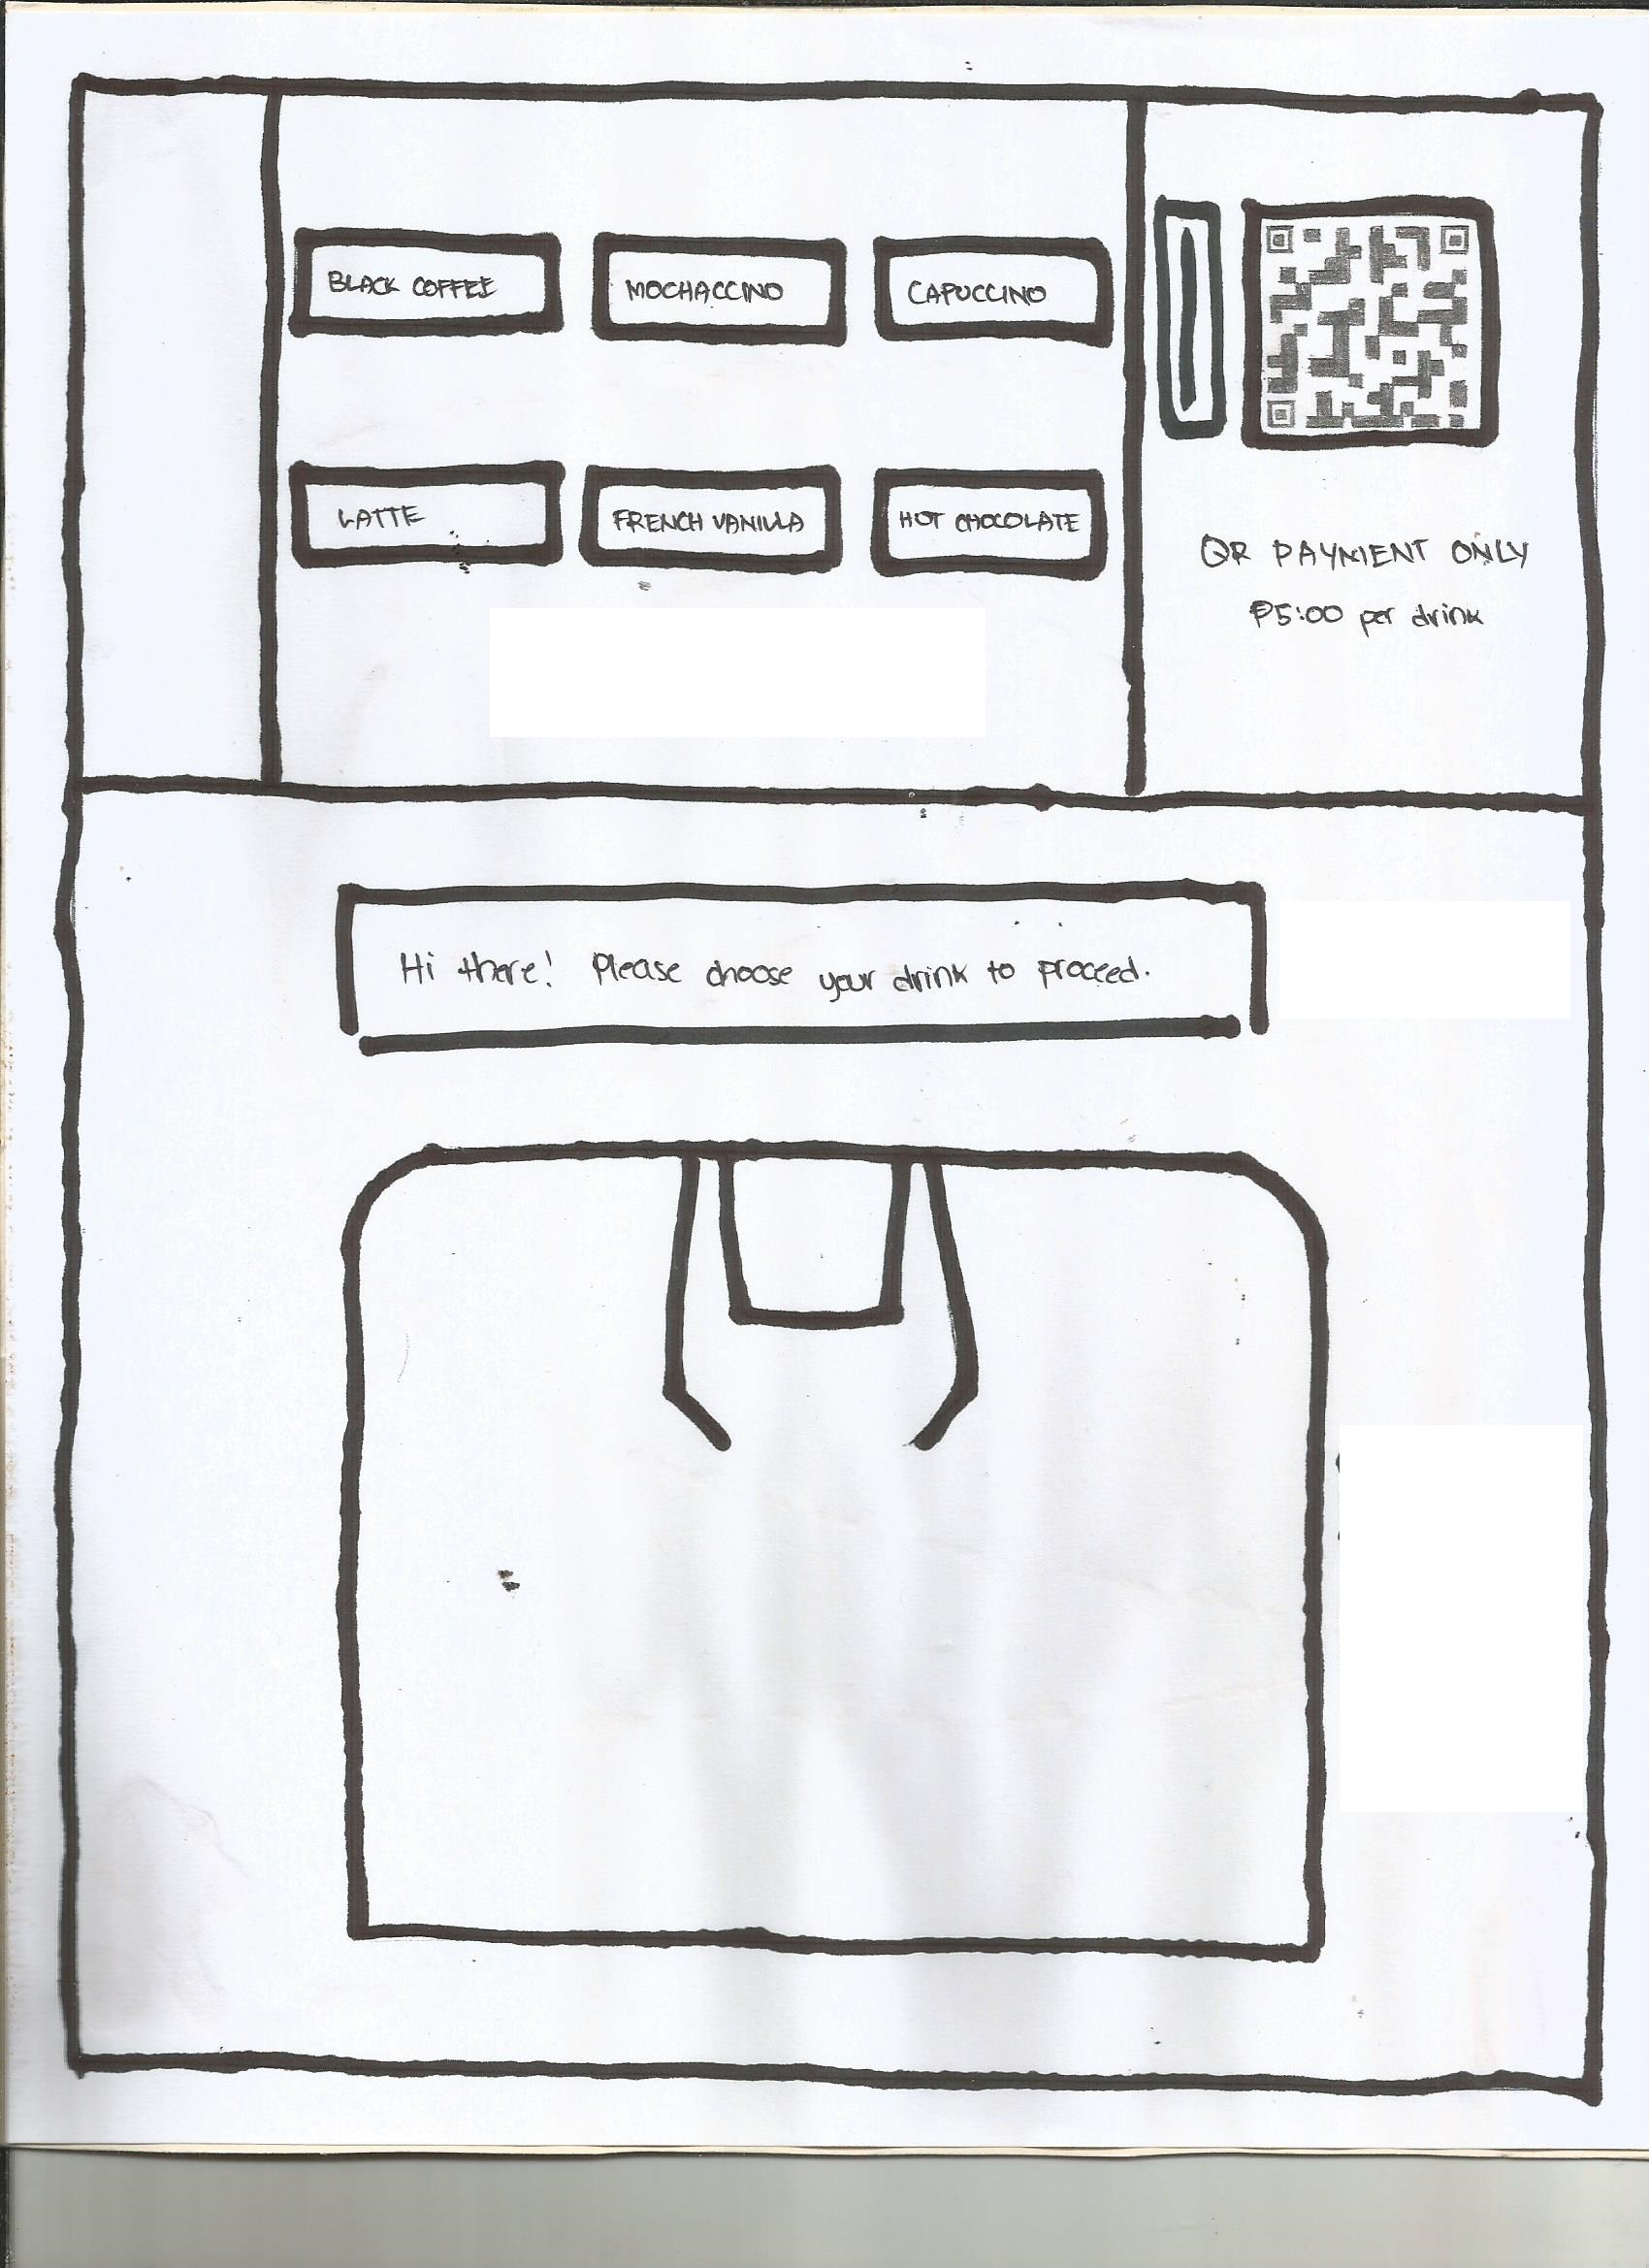 BLACK COFFEE
MOCHACCINO
CAPUCCINO
LATTE
FRENCH VANILLA
HOT CHOCOLATE
QR PAYMENT ONLY
₱5:00 per drink
Hi there! Please choose your drink to proceed.